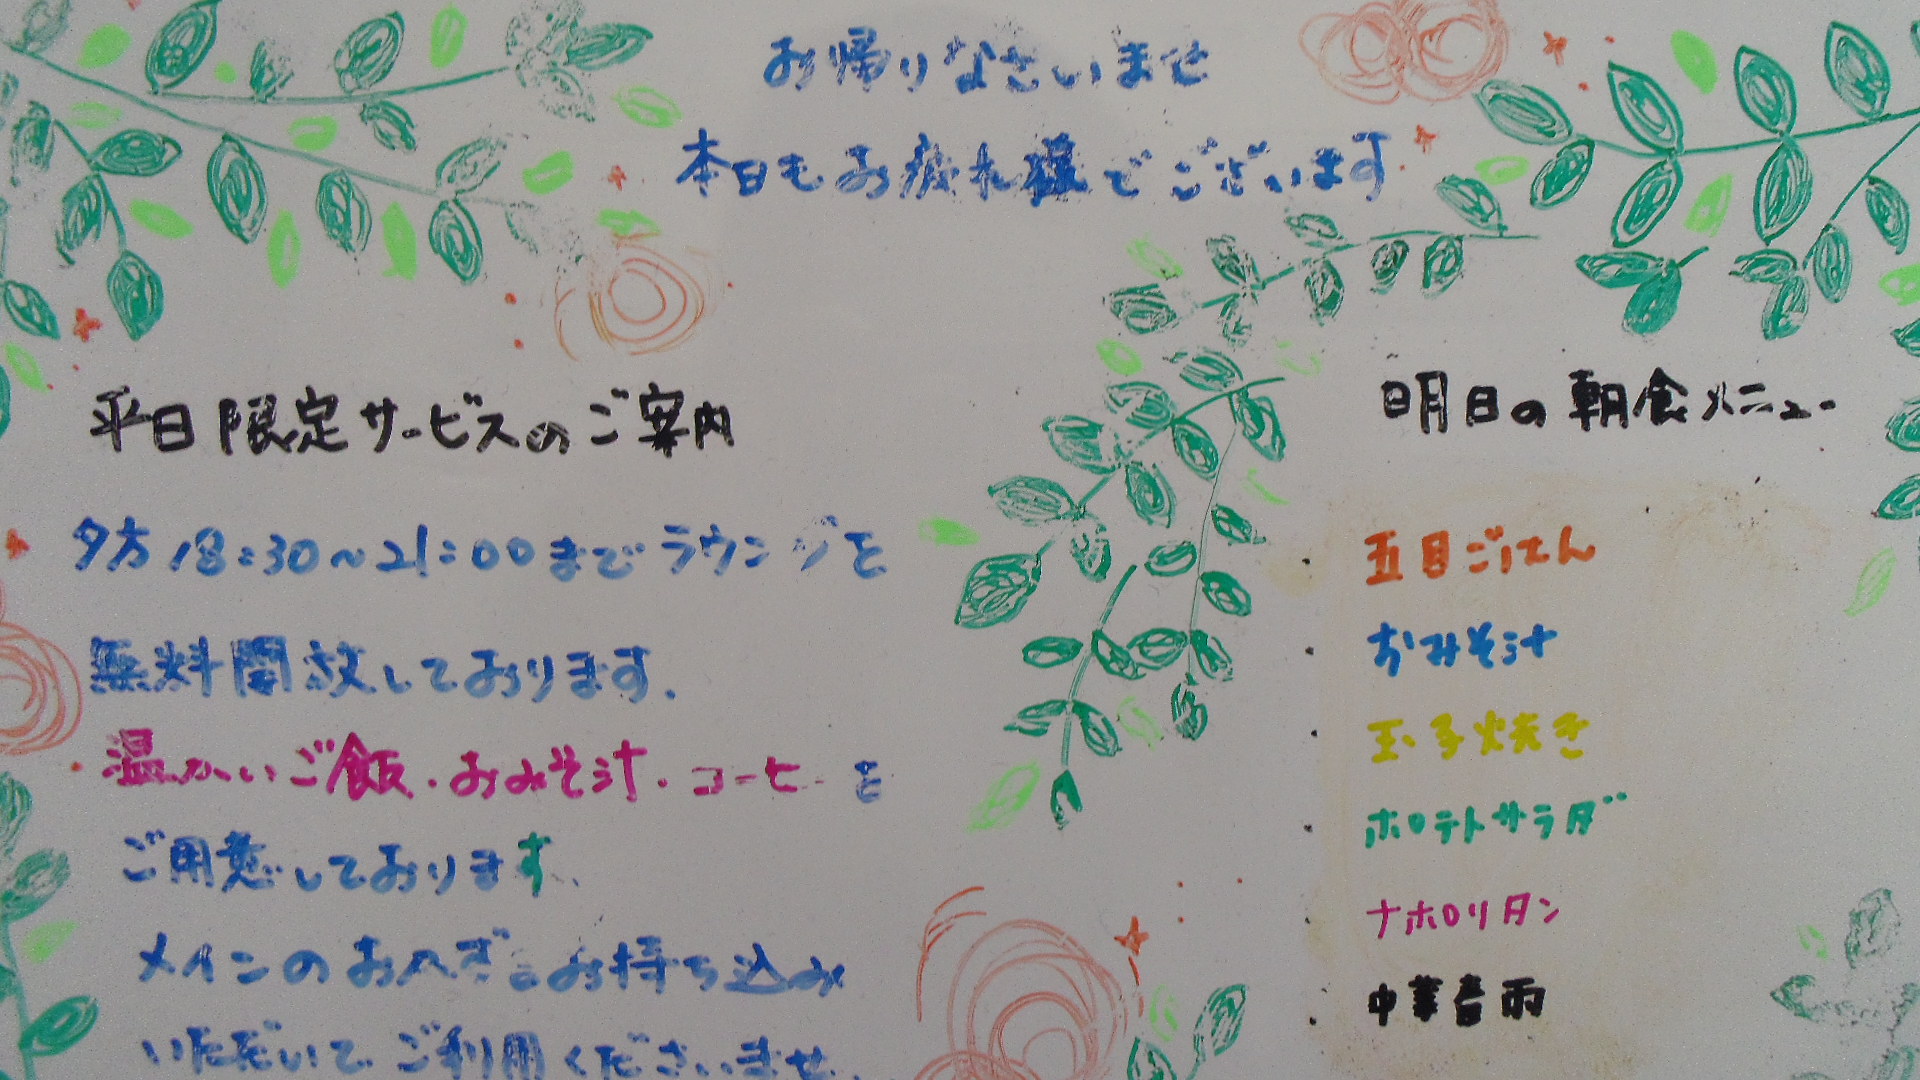 お帰りなさいませ
本日もお疲れ様でございます
平日限定サービスのご案内
夕方18:30〜21:00までラウンジを
無料開放しております.
温かいご飯・おみそ汁・コーヒーを
ご用意しております、
メインのおかずはお持ち込み
いただいてご利用くださいませ.
明日の朝食メニュー
・五目ごはん
・おみそ汁
・玉子焼き
・ポテトサラダ
・ナポリタン
・中華春雨